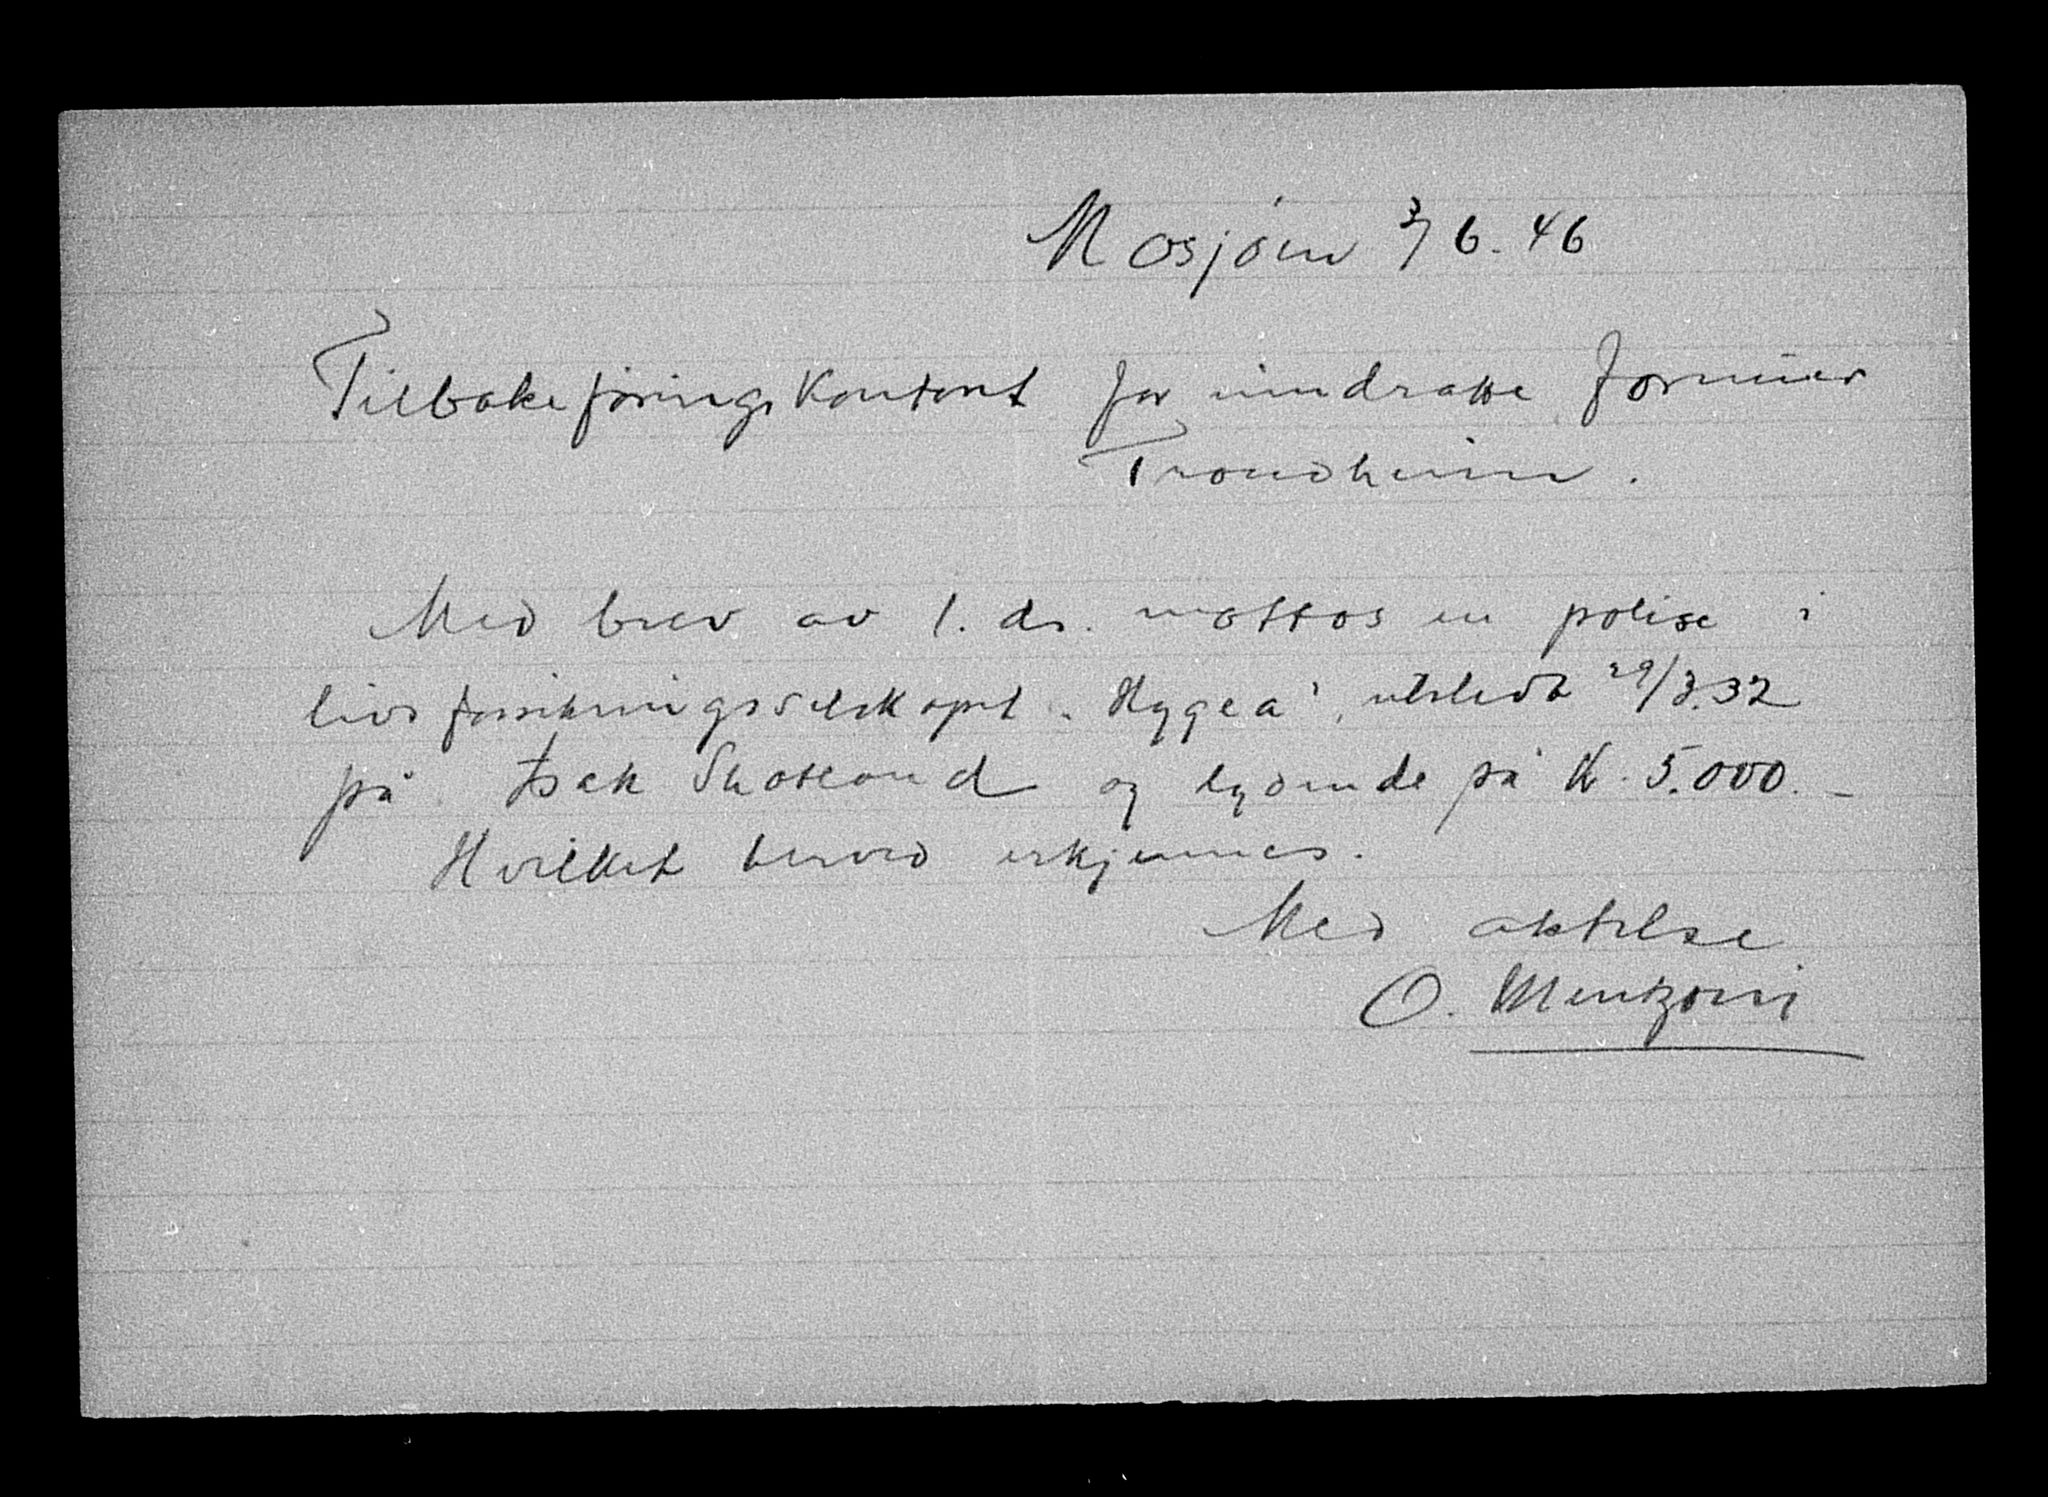 Mosjøen 3/6.46
Tilbakeføringskontoret for inndratte formuer
Trondheim.
Med brev av 1. ds. mottos en polise i
livsforsikringsselskapet "Hygea", utstedt 29/3.32
på Isak Shotland og lydende på Kr. 5.000.-
Hvilket herved erkjennes.
Med aktelse
O. Mentzoni